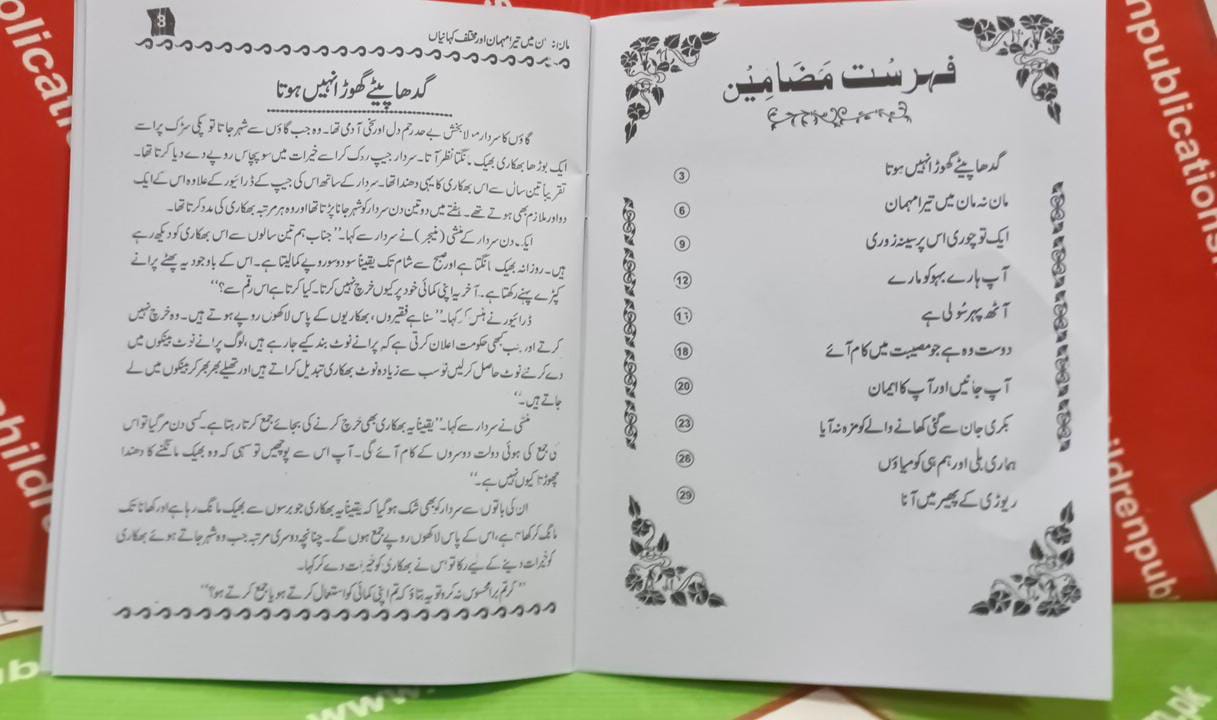 فہرست مَضَامِیْن
گدھا پیٹے گھوڑا نہیں ہوتا 3
مان نہ مان میں تیرا مہمان 6
ایک تو چوری اس پر سینہ زوری 9
آپ ہارے بہو کو مارے 12
آٹھ پہر سُولی ہے
دوست وہ ہے جو مصیبت میں کام آئے 18
آپ جانیں اور آپ کا ایمان 20
بکری جان سے گئی کھانے والے کو مزہ نہ آیا 23
ہماری بلی اور ہم ہی کو میاؤں 26
ریوڑی کے پھیر میں آنا 29
مان نہ مان میں تیرا مہمان اور مختلف کہانیاں
3
گدھا پیٹے گھوڑا نہیں ہوتا
گاؤں کا سردار مولا بخش بے حد رحم دل اور سخی آدمی تھا۔ وہ جب گاؤں سے شہر جاتا تو پکی سڑک پر اسے
ایک بوڑھا بھکاری بھیک مانگتا نظر آتا۔ سردار جیپ روک کر اسے خیرات میں سو پچاس روپے دے دیا کرتا تھا۔
تقریباً تین سال سے اس بھکاری کا یہی دھندا تھا۔ سردار کے ساتھ اس کی جیپ کے ڈرائیور کے علاوہ اس کے ایک
دو اور ملازم بھی ہوتے تھے۔ ہفتے میں دو تین دن سردار کو شہر جانا پڑتا تھا اور وہ ہر مرتبہ بھکاری کی مدد کرتا تھا۔
ایک دن سردار کے منشی (منیجر) نے سردار سے کہا۔ ”جناب ہم تین سالوں سے اس بھکاری کو دیکھ رہے
ہیں۔ روزانہ بھیک مانگتا ہے اور صبح سے شام تک یقیناً سو دو سو روپے کما لیتا ہے۔ اس کے باوجود یہ پھٹے پرانے
کپڑے پہنے رکھتا ہے۔ آخر یہ اپنی کمائی خود پر کیوں خرچ نہیں کرتا۔ کیا کرتا ہے اس رقم سے؟“
ڈرائیور نے ہنس کر کہا۔ ”سنا ہے فقیروں، بھکاریوں کے پاس لاکھوں روپے ہوتے ہیں۔ وہ خرچ نہیں
کرتے اور جب کبھی حکومت اعلان کرتی ہے کہ پرانے نوٹ بند کیے جا رہے ہیں، لوگ پرانے نوٹ بینکوں میں
دے کر نئے نوٹ حاصل کر لیں تو سب سے زیادہ نوٹ بھکاری تبدیل کراتے ہیں اور تھیلے بھر بھر کر بینکوں میں لے
جاتے ہیں۔“
منشی نے سردار سے کہا۔ ”یقیناً یہ بھکاری بھی خرچ کرنے کی بجائے جمع کرتا رہتا ہے۔ کسی دن مر گیا تو اس
کی جمع کی ہوئی دولت دوسروں کے کام آئے گی۔ آپ اس سے پوچھیں تو سہی کہ وہ بھیک مانگنے کا دھندا
چھوڑتا کیوں نہیں ہے۔“
ان کی باتوں سے سردار کو بھی شک ہو گیا کہ یقیناً یہ بھکاری جو برسوں سے بھیک مانگ رہا ہے اور کھانا تک
مانگ کر کھاتا ہے، اس کے پاس لاکھوں روپے جمع ہوں گے۔ چنانچہ دوسری مرتبہ جب وہ شہر جاتے ہوئے بھکاری
کو خیرات دینے کے لیے رکا تو اس نے بھکاری کو خیرات دے کر کہا۔
”گر تم برا محسوس نہ کرو تو یہ بتاؤ کہ تم اپنی کمائی کو استعمال کرتے ہو یا جمع کرتے ہو؟“